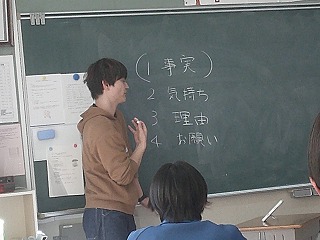 (1 事実)
2 気持ち
3 理由
4 お願い